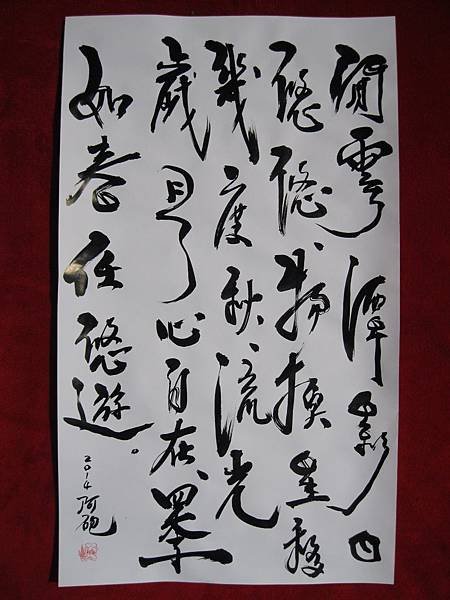 閒雲潭影日
悠悠物換星移
幾度秋流光
歲月心自在四季
如春任悠遊。
2014 阿